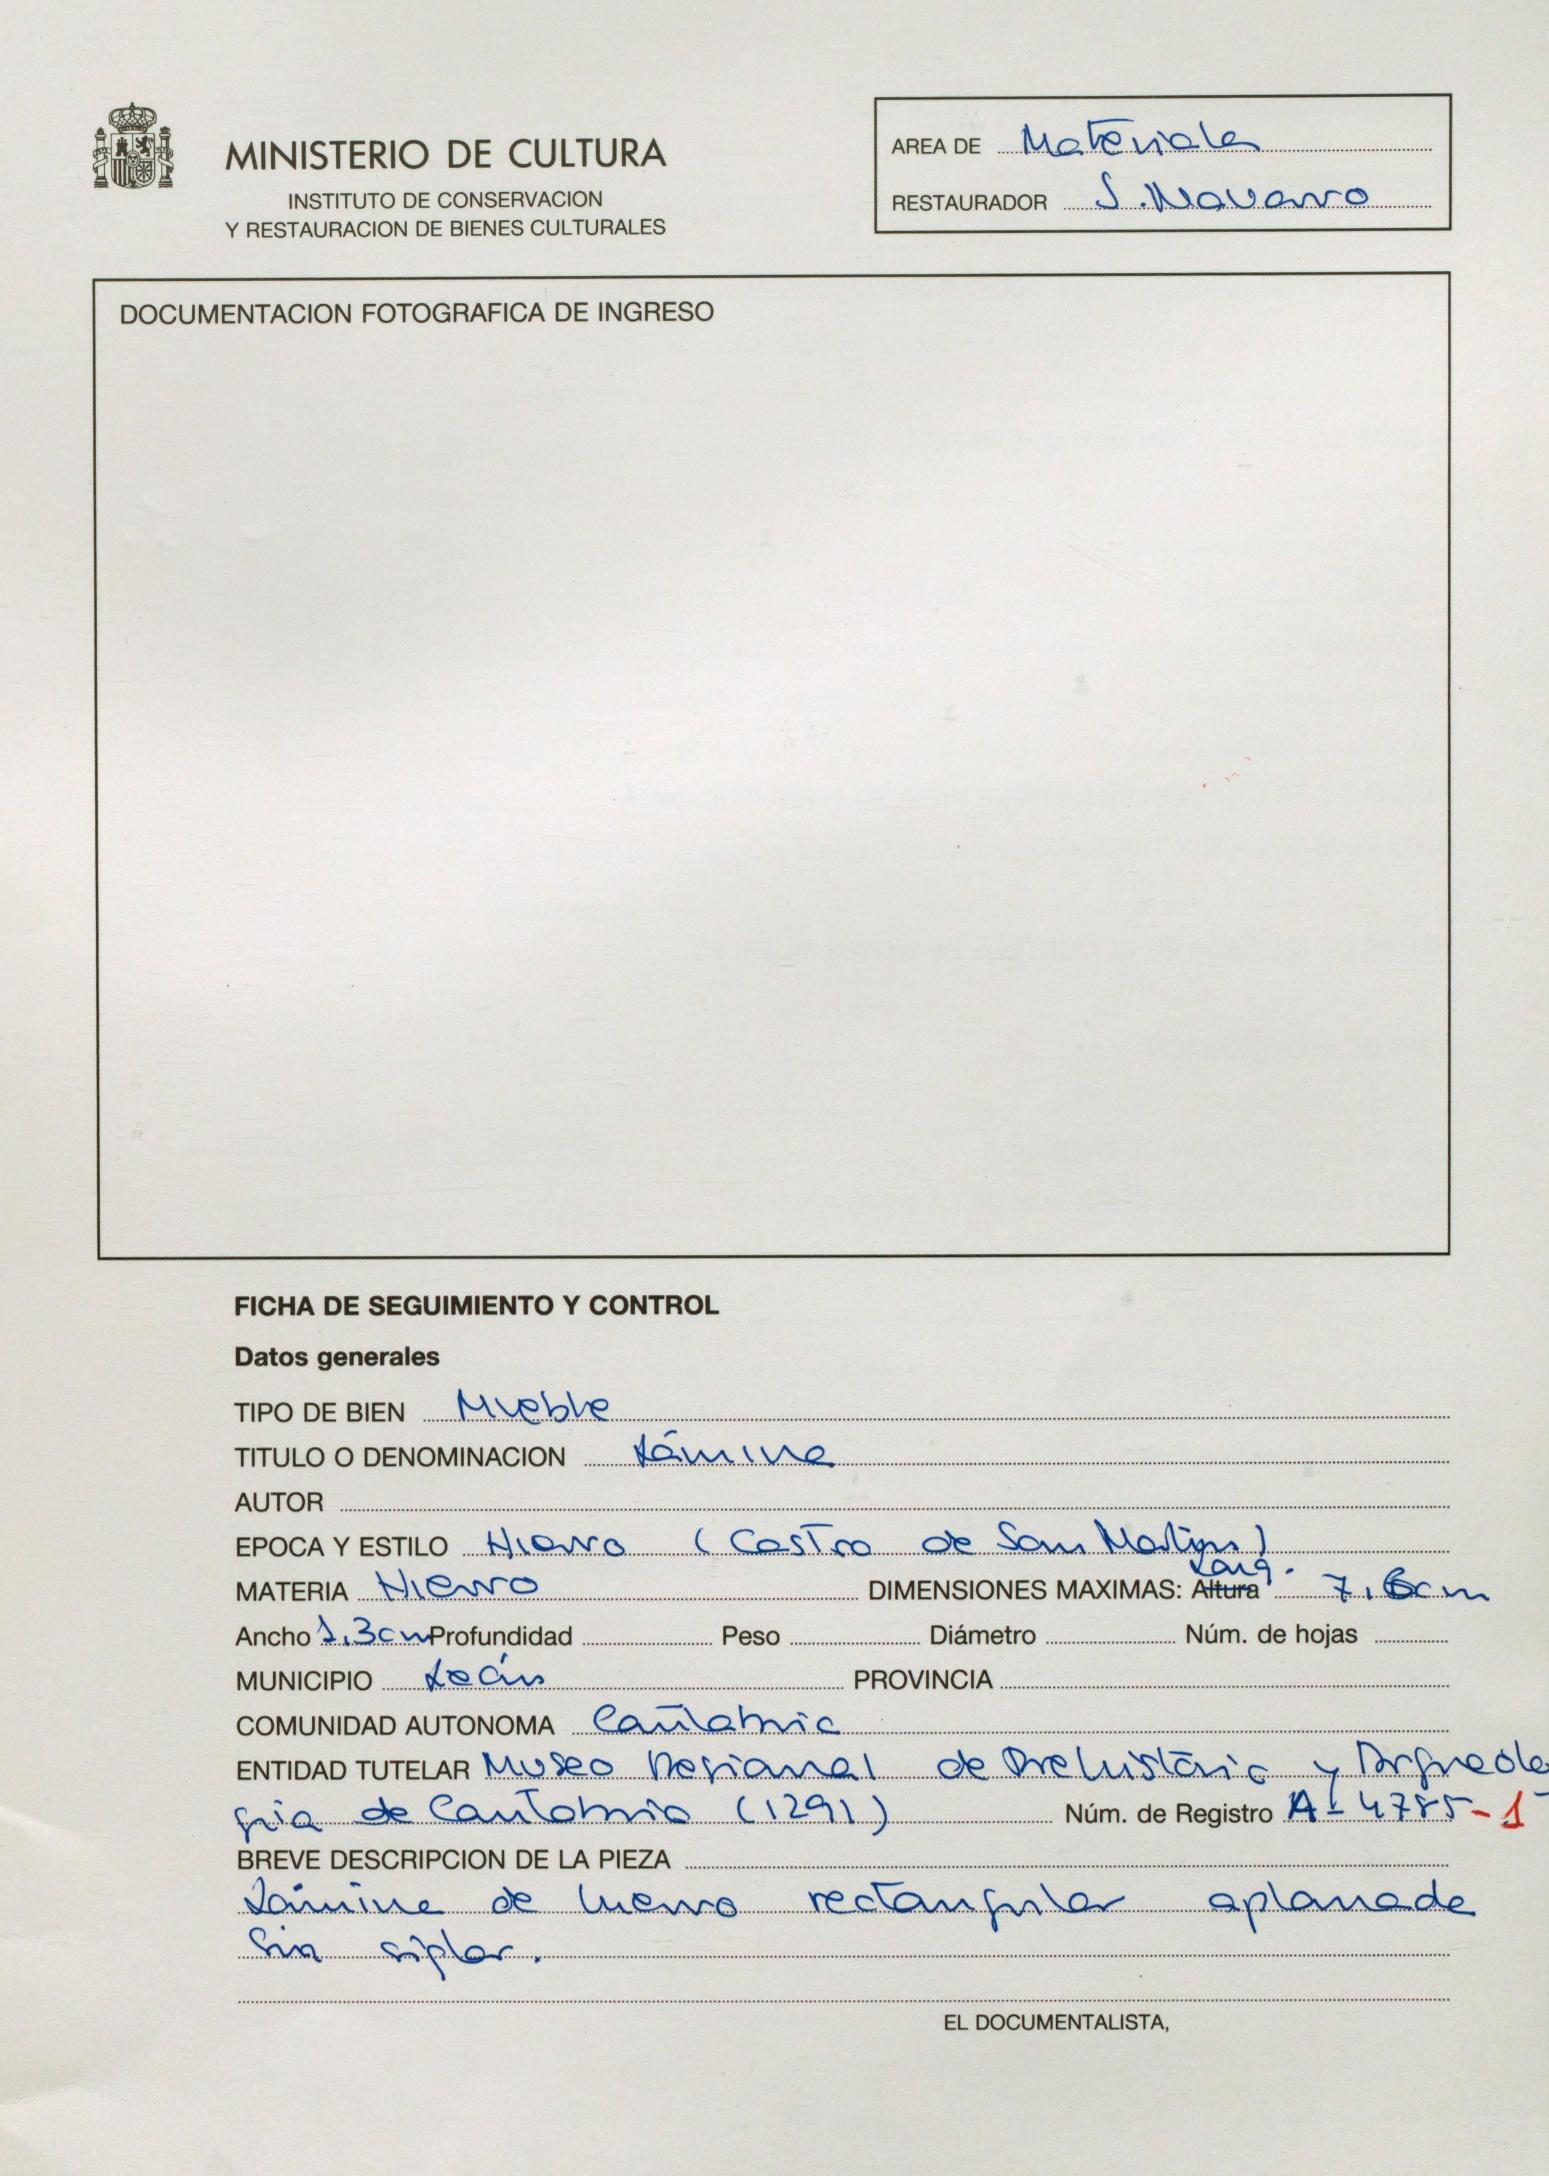 MINISTERIO DE CULTURA
INSTITUTO DE CONSERVACION
Y RESTAURACION DE BIENES CULTURALES
AREA DE Materiales
RESTAURADOR S. Navarro
DOCUMENTACION FOTOGRAFICA DE INGRESO
FICHA DE SEGUIMIENTO Y CONTROL
Datos generales
TIPO DE BIEN Mueble
TITULO O DENOMINACION Lámina
AUTOR
EPOCA Y ESTILO Hierro (Castro de San Martín)
MATERIA Hierro DIMENSIONES MAXIMAS: Altura Larg. 7,6cm
Ancho 1,3cm Profundidad Peso Diámetro Núm. de hojas
MUNICIPIO León PROVINCIA
COMUNIDAD AUTONOMA Cantabria
ENTIDAD TUTELAR Museo Regional de Prehistoria y Arqueolo
gía de Cantabria (1291) Núm. de Registro A-4785-1
BREVE DESCRIPCION DE LA PIEZA
Lámina de hierro rectangular aplanada
sin siglar.
EL DOCUMENTALISTA,